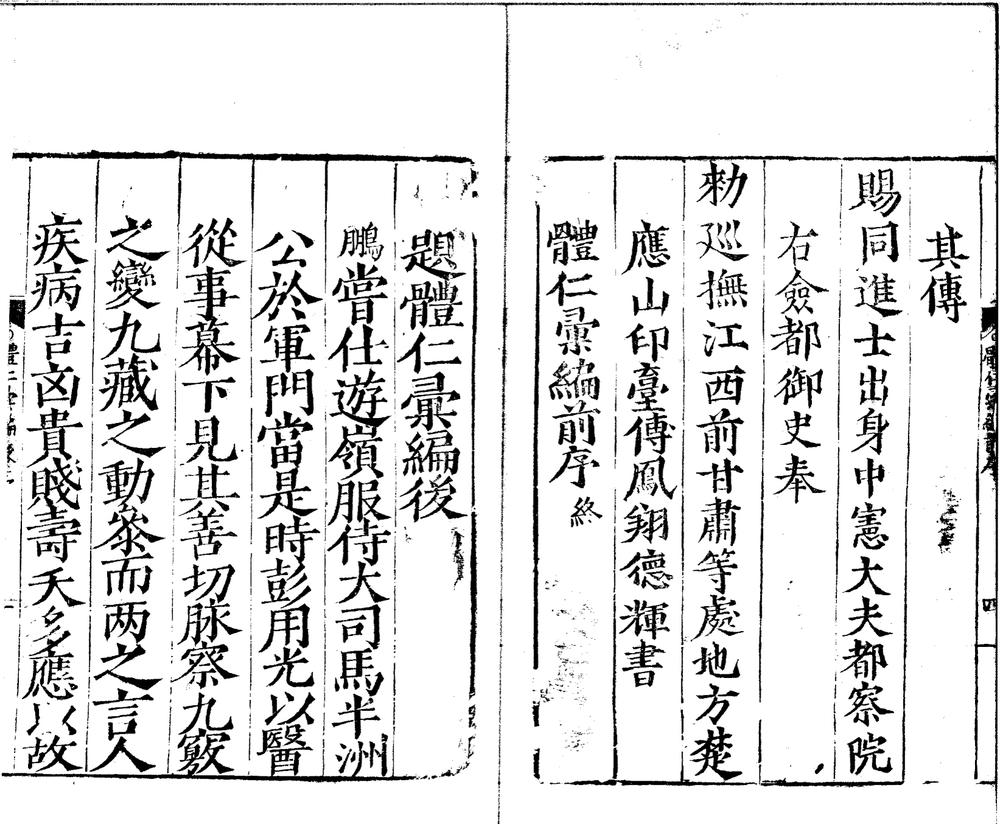 其傳
賜同進士出身中憲大夫都察院
右僉都御史奉
勑巡撫江西前甘肅等處地方楚
應山印臺傅鳳翔德輝書
體仁彙編前序終
題體仁彙編後
鵬嘗仕遊嶺服侍大司馬半洲
公於軍門當是時彭用光以醫
從事幕下見其善切脉察九竅
之變九藏之動叅而两之言人
疾病吉凶貴賤壽夭多應以故
四